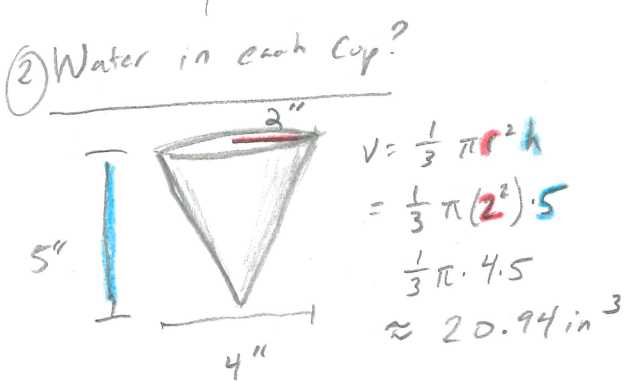 ② Water in each Cup?
2"
V = 1/3 πr²h
= 1/3 π(2²)·5
5"
1/3 π · 4·5
≈ 20.94 in³
4"